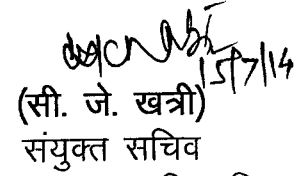 15/7/14
(सी. जे. खत्री)
संयुक्त सचिव